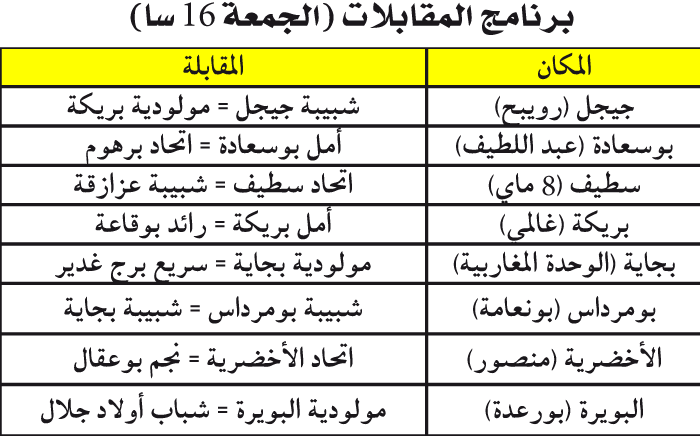 برنامج المقابلات (الجمعة 16 سا)
المكان المقابلة
جيجل (رويبح) شبيبة جيجل = مولودية بريكة
بوسعادة (عبد اللطيف) أمل بوسعادة = اتحاد برهوم
سطيف (8 ماي) اتحاد سطيف = شبيبة عزازقة
بريكة (غالمي) أمل بريكة = رائد بوقاعة
بجاية (الوحدة المغاربية) مولودية بجاية = سريع برج غدير
بومرداس (بونعامة) شبيبة بومرداس = شبيبة بجاية
الأخضرية (منصور) اتحاد الأخضرية = نجم بوعقال
البويرة (بورعدة) مولودية البويرة = شباب أولاد جلال